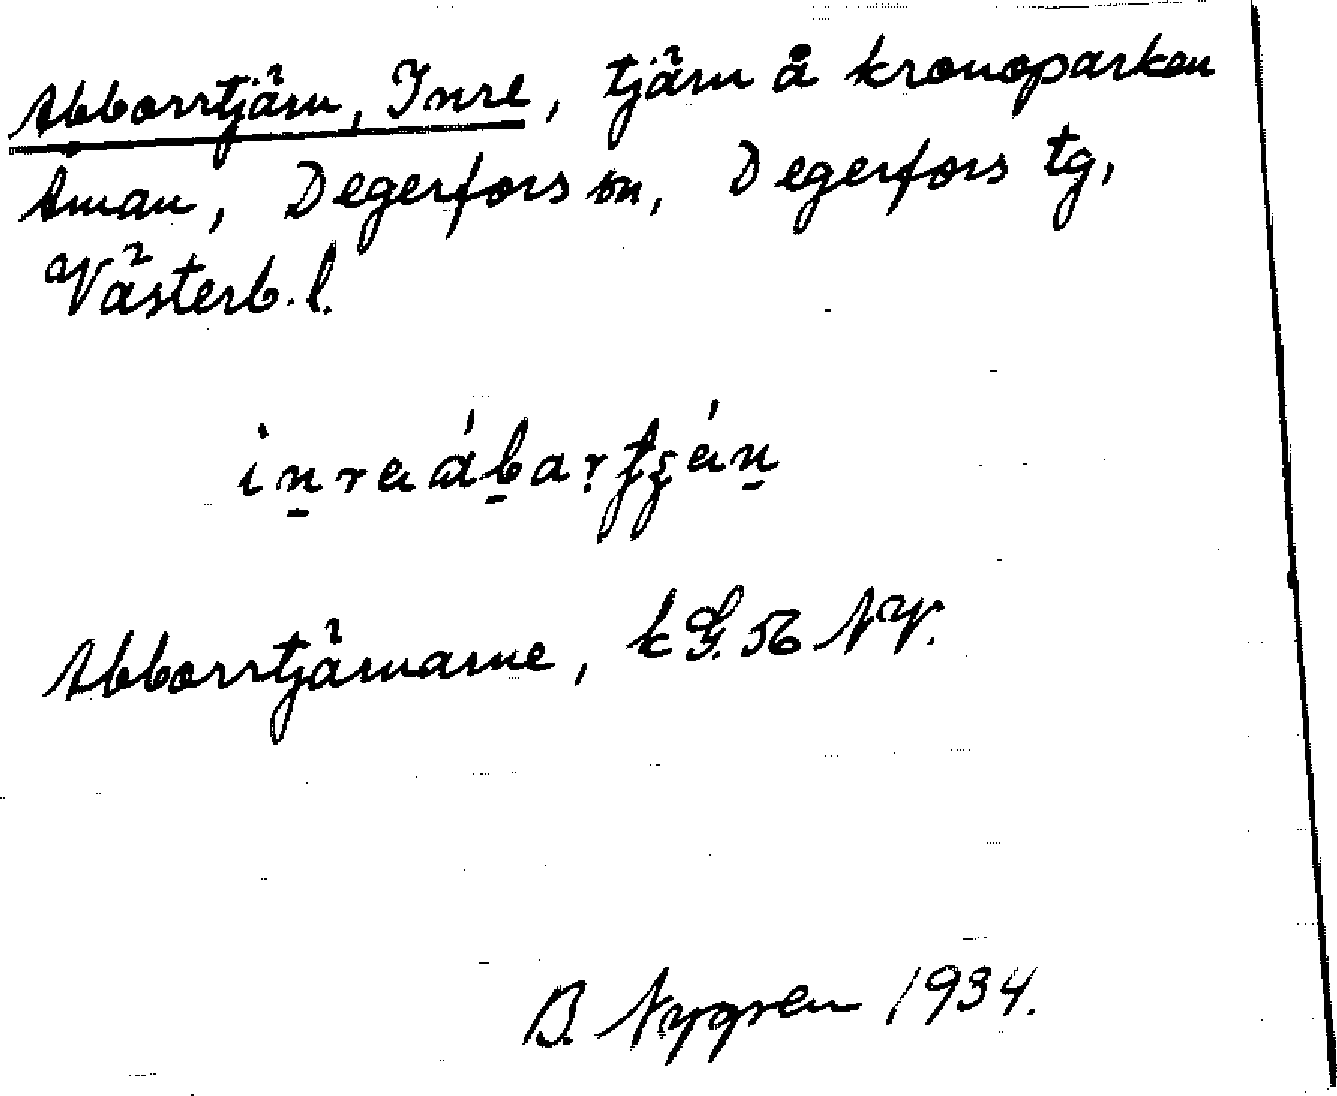 Abborrtjärn, Inre, tjärn å kronoparken
Åman, Degerfors sn, Degerfors tg,
Västerb. l.
Abborrtjärnarne, k G. 56 NV.
B. Nygren 1934.